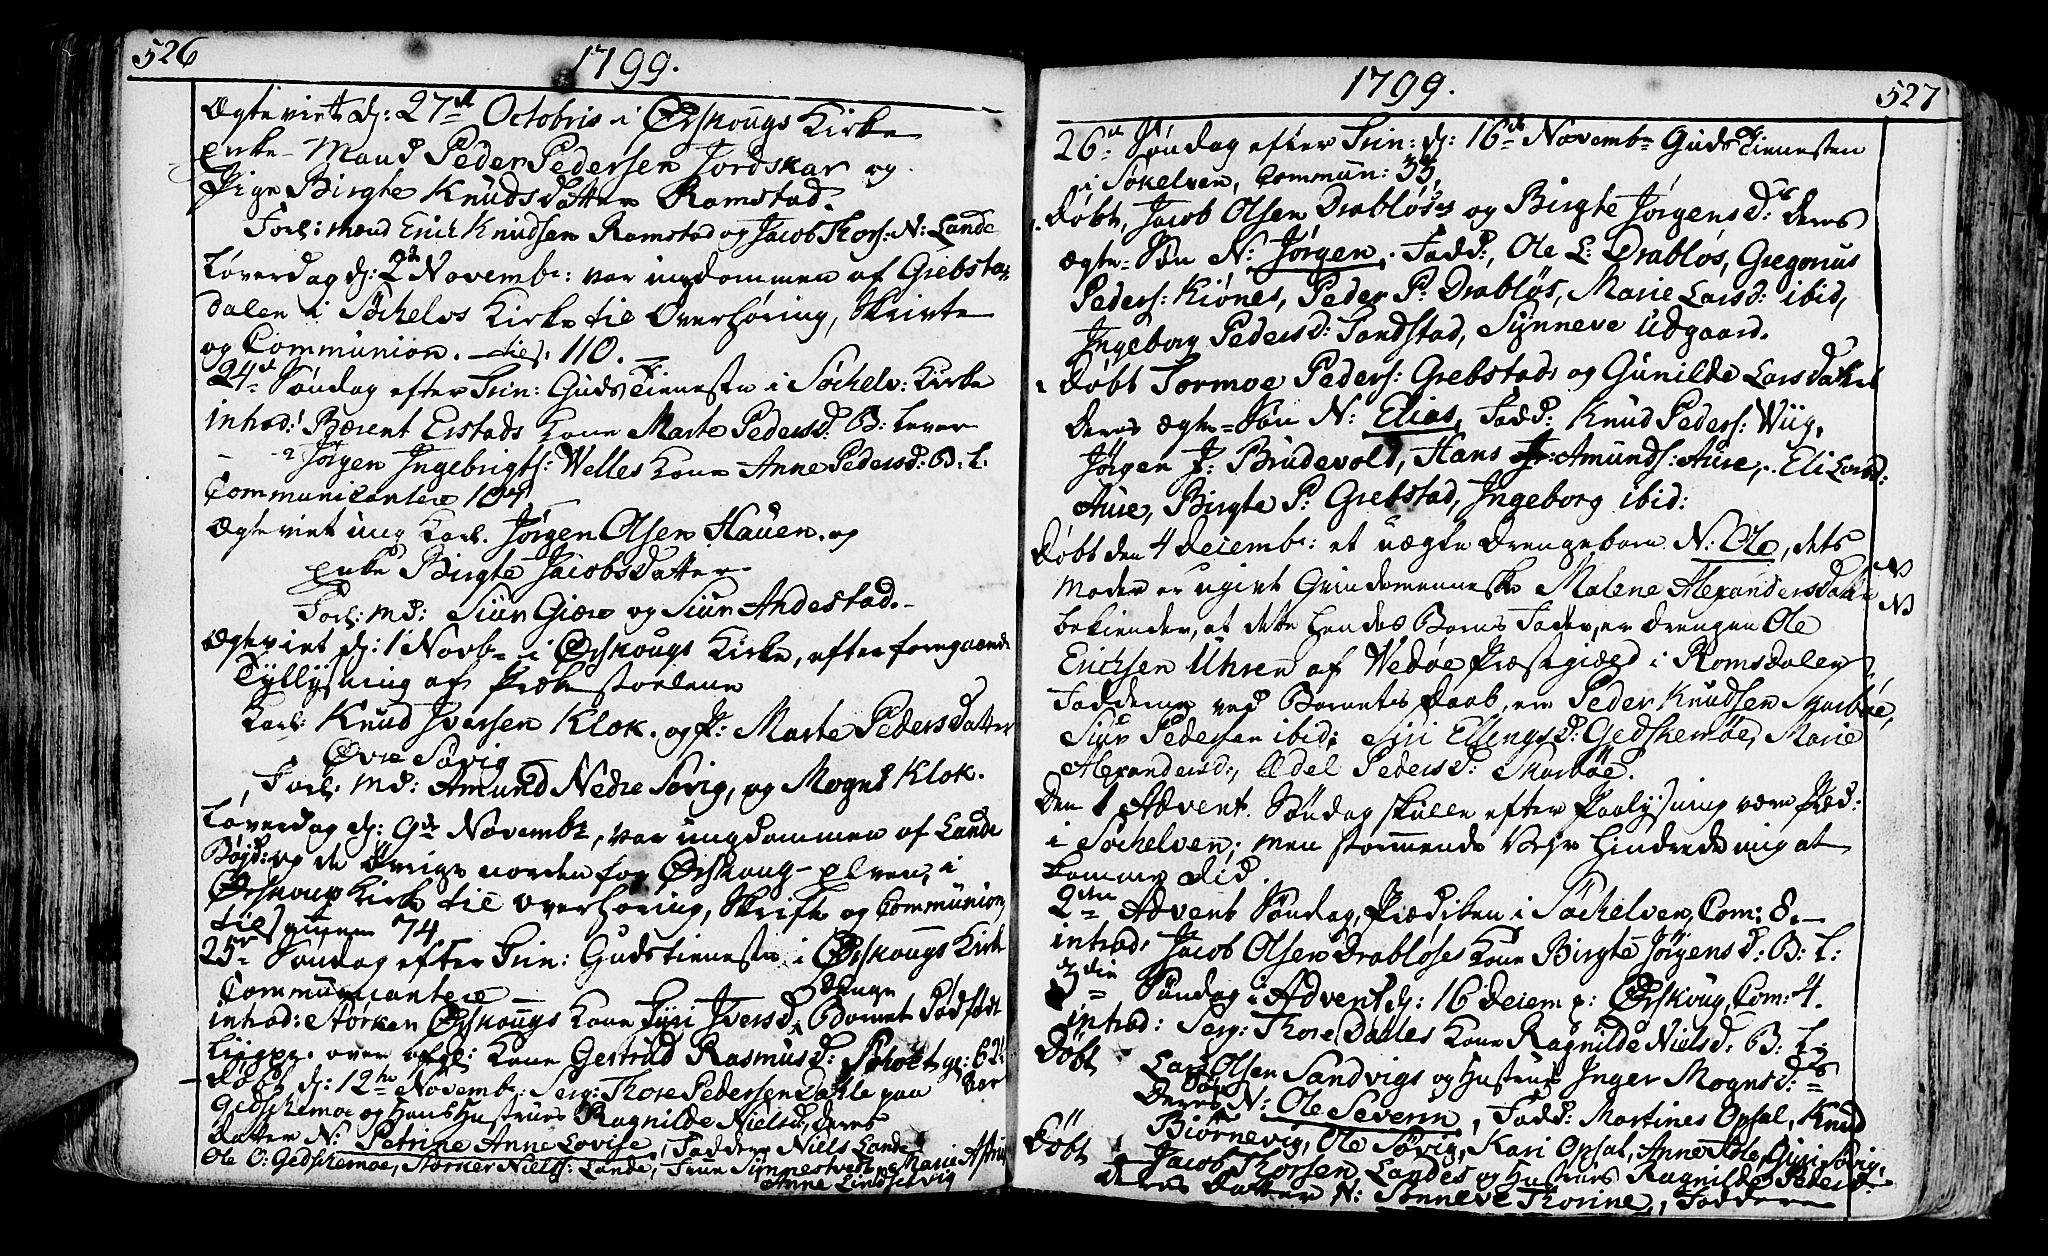 526
1799.
Ægteviet dj: 27de Octobris i Ørskougs Kirke
enke-Mand Peder Pedersen Jordskar og
Pige Birgte Knudsdatter Ramstad.
Forl: mænd Erich Knudsen Ramstad og Jacob Thors: N: Lande
Løverdag dj: 2d Novembr: var ungdommen af Grebsta-
dalen i Søchelvs Kirke til Overhøring, Skrivte
og Communion. tils. 110.
24de Søndag efter Trin: Guds Tieneste i Søchelv: Kirke
introd: Bærent Erstads Kone Marte Pedersd: B: lever
- 2 Jørgen Ingebrigts: Welles Kone Anne Pedersd: B: l.
Communicantere 107
Ægteviet ung Karl. Jørgen Olsen Hauen. og
enke Birgte Jacobsdatter
Forl: md: Siur Giære og Siur Andestad.
Ægteviet dj: 1 Novbr i Ørskougs Kirke, efter foregaaende
Tyllysning af Prækestoelene
Karl: Knud Iversen Klok. og P: Marte Pedersdatter
Øvre Søvig
Forl: md: Amund Nedre Søvig, og Mogns Klok.
Løverdag dj: 9de Novembr, var ungdommen af Lande
Bøjd: og de øvrige norden for Ørskoug-elven, i
Ørskoug Kirke til overhøring, Skrift og Communion,
tilsammen 74
25de Søndag efter Trin: Gudstieneste i Ørskougs Kirke
Communicantere
introd: Størker Ørskougs Kone Siri Iversd, Barnet dødfødt
drenge
Liigpr. over afgl: Kone Gertrud Rasmusd: Stholt gl: 62
Aar
Døbt dj: 12te Novemb: Serg: Thore Pedersen Dahle paa
Gedschemoe og Hans Hustrues Ragnilde Nielsd, deres
datter N: Petrine Anne Lovise, Faddere Niels Lande
Ole O: Gedschemoe, Størker Niels: Lande, Frue Synnestvedt, Marie Astrup
Anne Lindschvig
1799.
527
26de Søndag efter Trin: dj: 16de Novembr Guds Tienesten
i Søkelven, Commun: 33,
Døbt, Jacob Olsen Drabløses og Birgte Jørgensd: deres
ægte-Søn N: Jørgen. Fadd:, Ole L: Drabløs, Gregorius
Peders: Kiønes, Peder P: Drabløs, Marie Larsd: ibid,
Ingeborg Pedersd: Sandstad, Synneve Udgaard.
Døbt Tormoe Peders: Grebstads og Gunilde Larsdatter
deres ægte-Søn N: Elias, Fadd: Knud Peders: Wiig,
Jørgen J: Brudevold, Hans Amunds: Aure, Eli Larsd:
Aure, Birgte P: Grebstad, Ingeborg ibid:
Døbt den 4 decembr: et uægte drengebarn. N: Ole, dets
Moder er ugivt Qvindemenneske Malene Alexandersdatter
bekiender, at dette hendes Barns Fader, er drengen Ole
Erichsen Uhren af Wedøe Præstegield i Romsdalen
Fadderne ved Barnets daab, er Peder Knudsen Skarbøe,
Siur Pedersen ibid; Siri Ellingsd: Gedskemøe, Marie
Alexandersd:, Edel Pedersd: Skarbøe.
NB
Den 1 Advent. Søndag skulle efter Paalysning være Præd:
i Søchelven; men stormende Vejr hindrede mig at
komme did.
2den Advent Søndag, Prædiken i Søchelven, Com: 8.
introd: Jacob Olsen Drabløses Kone Birgte Jørgensd: B: l:
3die Søndag i Advent dj: 16 decem p: Ørskoug, Com: 4.
introd: Serg: Thore Dahles Kone Ragnilde Nielsd: B: l.
Døbt
Lars Olsen Sandvigs og Hustrues Inger Mognsd:
deres Søn N: Ole Severin, Fadd: Martines Opsal, Knud
Biørnevig, Ole Søvig, Kari Opsal, Anne Adle, Gigi Søvig,
Døbt
Jacob Thorsen Landes og Hustrues Ragnilde Pedersd
deres datter N: Synneve Thorine, Faddere